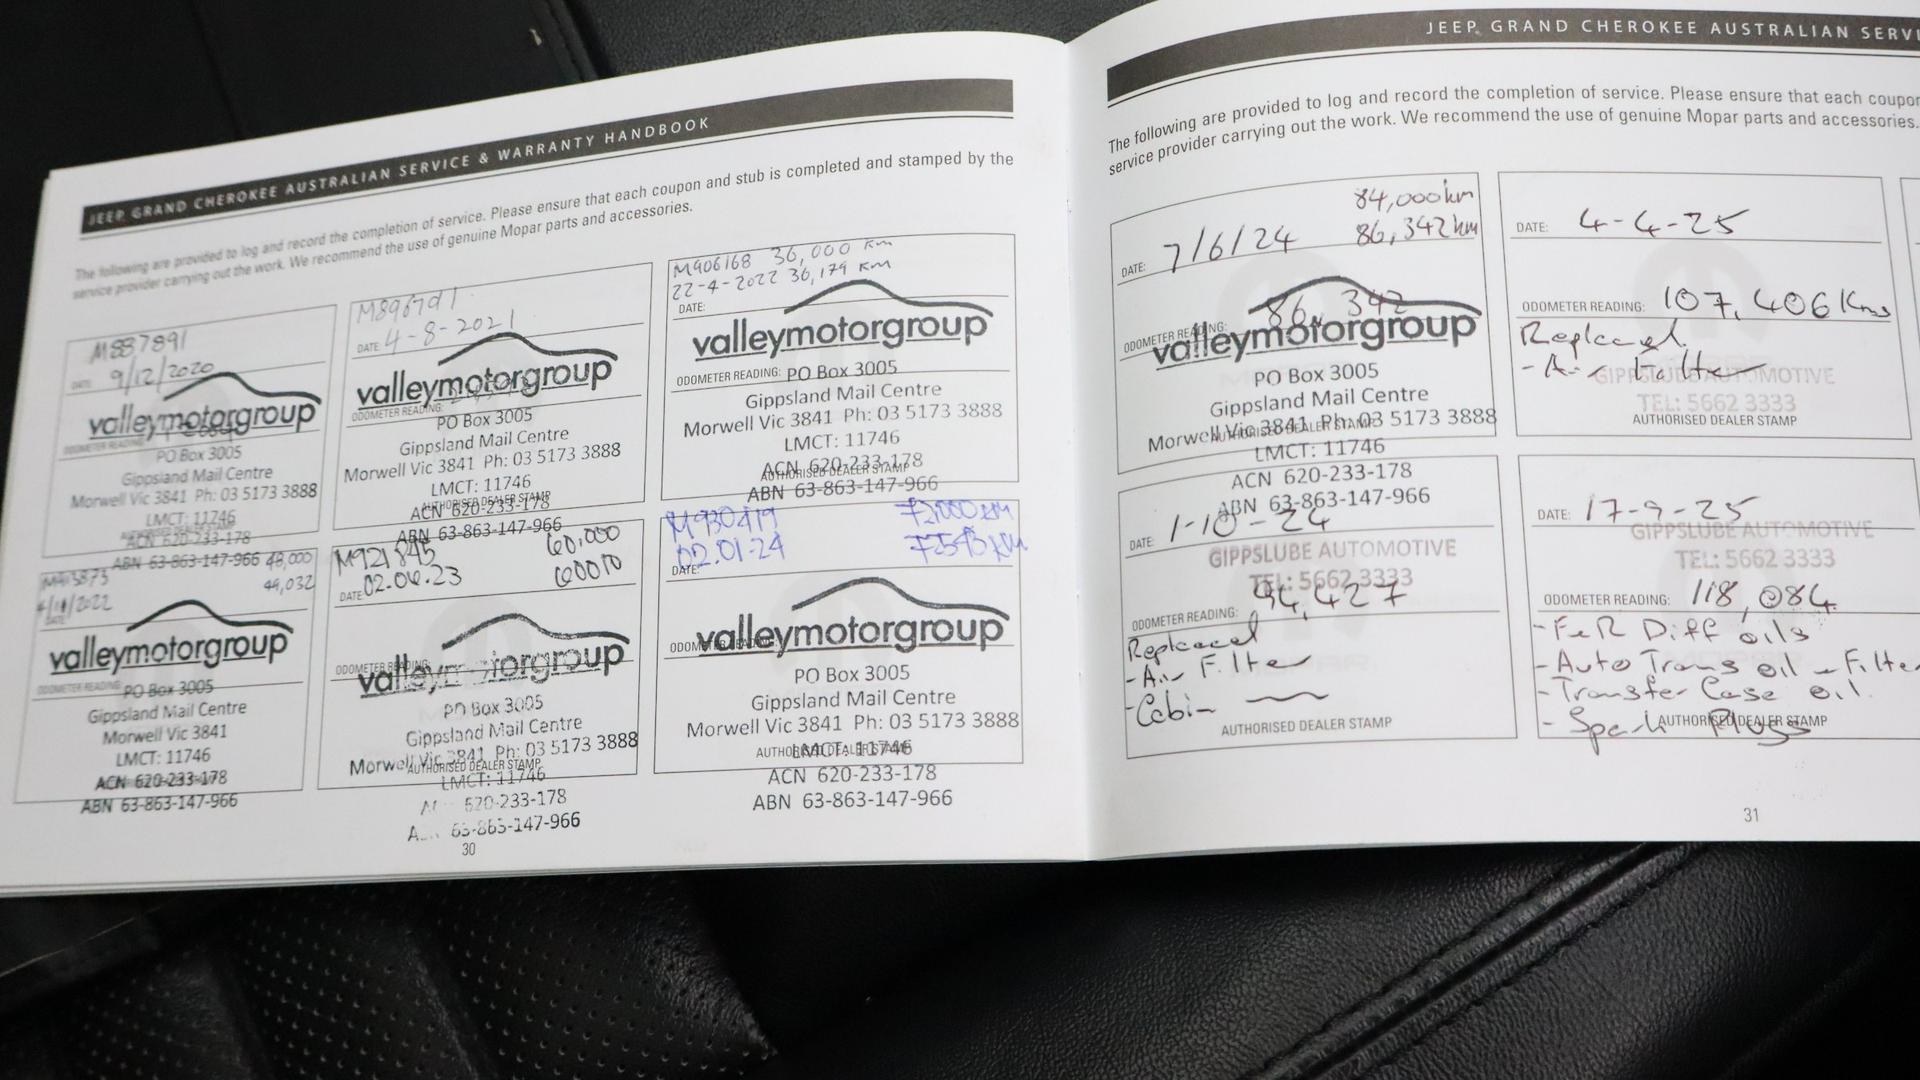 JEEP GRAND CHEROKEE AUSTRALIAN SERVICE & WARRANTY HANDBOOK
The following are provided to log and record the completion of service. Please ensure that each coupon and stub is completed and stamped by the
service provider carrying out the work. We recommend the use of genuine Mopar parts and accessories.
M887891
DATE: 9/12/2020
valleymotorgroup
ODOMETER READING:
PO Box 3005
Gippsland Mail Centre
Morwell Vic 3841 Ph: 03 5173 3888
LMCT: 11746
ACN 620-233-178
ABN 63-863-147-966
M896791
DATE: 4-8-2021
valleymotorgroup
ODOMETER READING:
PO Box 3005
Gippsland Mail Centre
Morwell Vic 3841 Ph: 03 5173 3888
LMCT: 11746
AUTHORISED DEALER STAMP
ACN 620-233-178
ABN 63-863-147-966
M906168 36,000 km
22-4-2022 36,179 km
DATE:
valleymotorgroup
ODOMETER READING: PO Box 3005
Gippsland Mail Centre
Morwell Vic 3841 Ph: 03 5173 3888
LMCT: 11746
ACN 620-233-178
AUTHORISED DEALER STAMP
ABN 63-863-147-966
48,000
49,032
DATE:
valleymotorgroup
ODOMETER READING: PO Box 3005
Gippsland Mail Centre
Morwell Vic 3841
LMCT: 11746
ACN 620-233-178
ABN 63-863-147-966
M921845 60,000
DATE: 02.06.23 60010
valleymotorgroup
ODOMETER READING:
PO Box 3005
Gippsland Mail Centre
Morwell Vic 3841 Ph: 03 5173 3888
AUTHORISED DEALER STAMP
LMCT: 11746
620-233-178
63-863-147-966
M930419 72000 km
02.01.24
DATE:
valleymotorgroup
ODOMETER READING:
PO Box 3005
Gippsland Mail Centre
Morwell Vic 3841 Ph: 03 5173 3888
AUTHORISED DEALER STAMP
LMCT: 11746
ACN 620-233-178
ABN 63-863-147-966
30
JEEP GRAND CHEROKEE AUSTRALIAN SERVI
The following are provided to log and record the completion of service. Please ensure that each coupon
service provider carrying out the work. We recommend the use of genuine Mopar parts and accessories.
84,000km
86,342km
DATE: 7/6/24
86,342
ODOMETER READING:
valleymotorgroup
PO Box 3005
Gippsland Mail Centre
Morwell Vic 3841 Ph: 03 5173 3888
AUTHORISED DEALER STAMP
LMCT: 11746
ACN 620-233-178
ABN 63-863-147-966
DATE: 4-4-25
ODOMETER READING: 107,406 Kms
Replaced
- Air Filter
GIPPSLUBE AUTOMOTIVE
TEL: 5662 3333
AUTHORISED DEALER STAMP
DATE: 1-10-24
GIPPSLUBE AUTOMOTIVE
TEL: 5662 3333
ODOMETER READING: 94,427
Replaced
- Air Filter
- Cabin
AUTHORISED DEALER STAMP
DATE: 17-9-25
GIPPSLUBE AUTOMOTIVE
TEL: 5662 3333
ODOMETER READING: 118,084
- F&R Diff oils
- Auto Trans oil - Filter
- Transfer Case oil.
- Spark Plugs
AUTHORISED DEALER STAMP
31